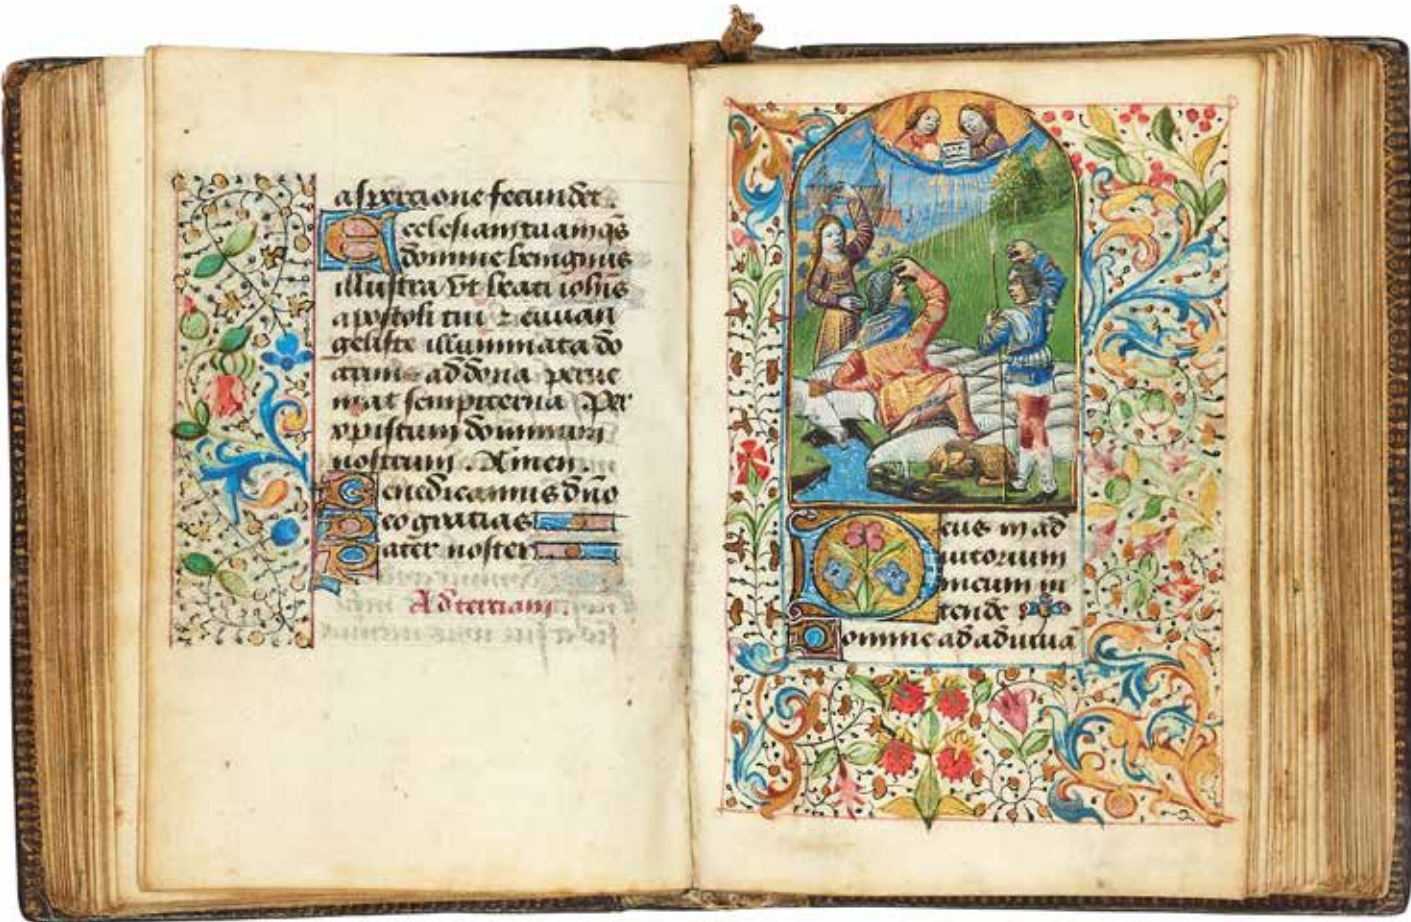 aspercione fecundet.
Ecclesiam tuam q̄s
domine benignus
illustra Vt beati ioh̄is
apostoli tui ⁊ euuan
geliste illuminata do
ctrinis ad dona perue
niat sempiterna Per
xpistum dominum
nostrum. Amen.
Benedicamus dn̄o
Deo gracias
Pater noster
Ad terciam.
Deus in ad
iutorium
meum in
tende
Domine ad adiuuā